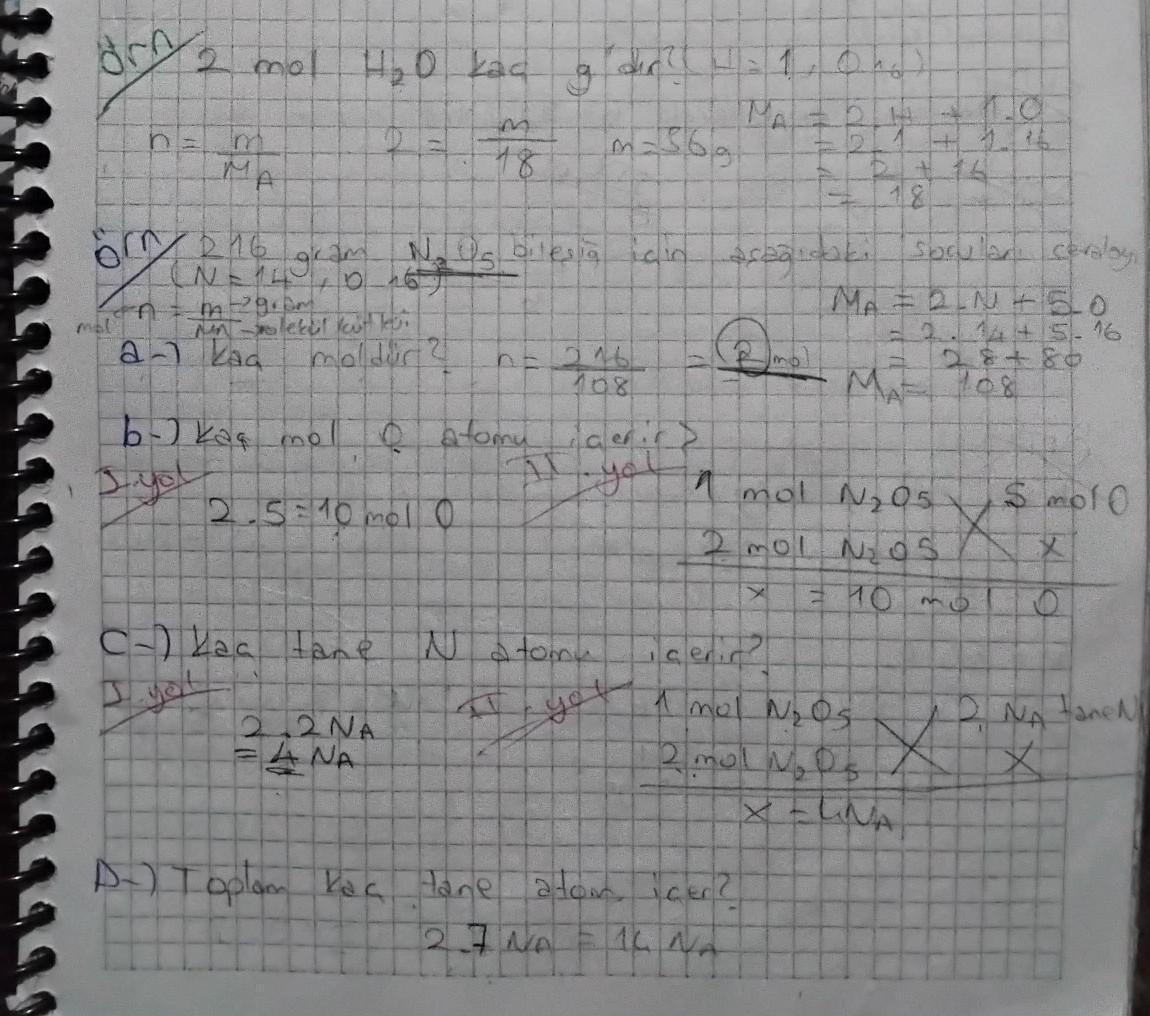 örn/ 2 mol H₂O kaç g'dır? (H=1, O 16)
M_A = 2.H + 1.O
n = m/M_A   2 = m/18   m = 36g   = 2.1 + 1.16
= 2 + 16
= 18
örn/ 216 gram N₂O₅ bileşiği için aşağıdaki soruları cevaplay
(N = 14, O 16)
mol ← n = m → gram / MA → molekül kütlesi
M_A = 2.N + 5.O
= 2.14 + 5.16
a-) kaç moldür? n = 216/108 = 2 mol   = 28 + 80
M_A = 108
b-) kaç mol O atomu içerir?
I. yol   II. yol
2.5 = 10 mol O   1 mol N₂O₅   5 mol O
2 mol N₂O5   x
x = 10 mol O
C-) kaç tane N atomu içerir?
I. yol   II. yol   1 mol N₂O₅   2 NA tane N
2.2 NA
= 4 NA   2 mol N₂O₅   X
x = 4NA
D-) Toplam kaç tane atom içer?
2.7 NA = 14 NA